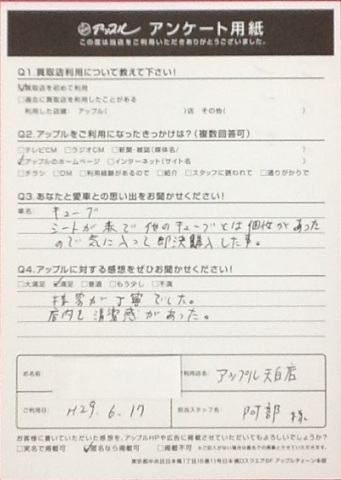 アップル アンケート用紙
この度は当店をご利用いただきありがとうございました。
Q1.買取店利用について教えて下さい!
☑買取店を初めて利用
□過去に買取店を利用したことがある
利用した店舗: アップル( )店 その他( )
Q2.アップルをご利用になったきっかけは?(複数回答可)
□テレビCM □ラジオCM □新聞・雑誌(媒体名/ )
☑アップルのホームページ □インターネット(サイト名 )
□チラシ □DM □利用経験があるので □紹介 □スタッフに誘われて □通りがかりで
Q3.あなたと愛車との思い出をお聞かせください!
車名: キューブ
シートが赤で他のキューブとは個性があった
ので気に入って即決購入した事。
Q4.アップルに対する感想をぜひお聞かせください!
□大満足 ☑満足 □普通 □もう少し □不満
接客が丁寧でした。
店内も清潔感があった。
お名前
ご利用店名 アップル天白店
ご利用日 H29.6.17
担当スタッフ名 阿部 様
お客様に書いていただいた感想を、アップルHPや広告に掲載させていただいてもよろしいでしょうか?
□実名で掲載可 ☑匿名なら掲載可 □掲載不可